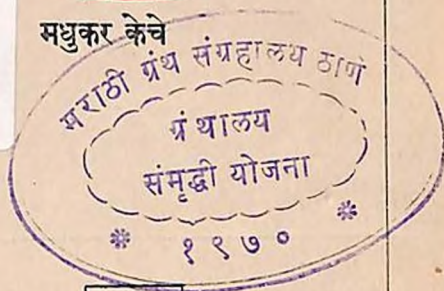 मधुकर केचे
मराठी ग्रंथ संग्रहालय ठाणे
ग्रंथालय
संमृद्धी योजना
* १९७० *